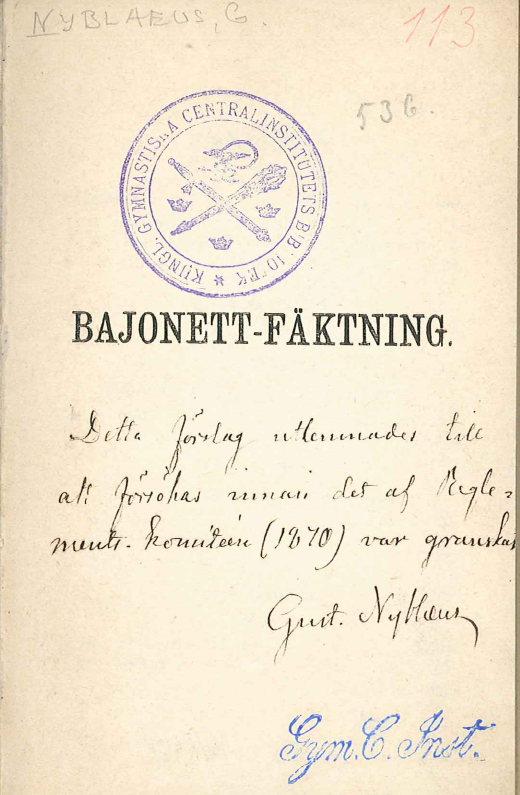 NYBLAEUS, G.
113
536.
KUNGL. GYMNASTISKA CENTRALINSTITUTETS BIBLIOTEK
BAJONETT-FÄKTNING.
Detta förslag utlemnades till
att försökas innan det af Regle-
ments-komiteen (1870) var granskat
Gust. Nyblæus
Gym. C. Inst.